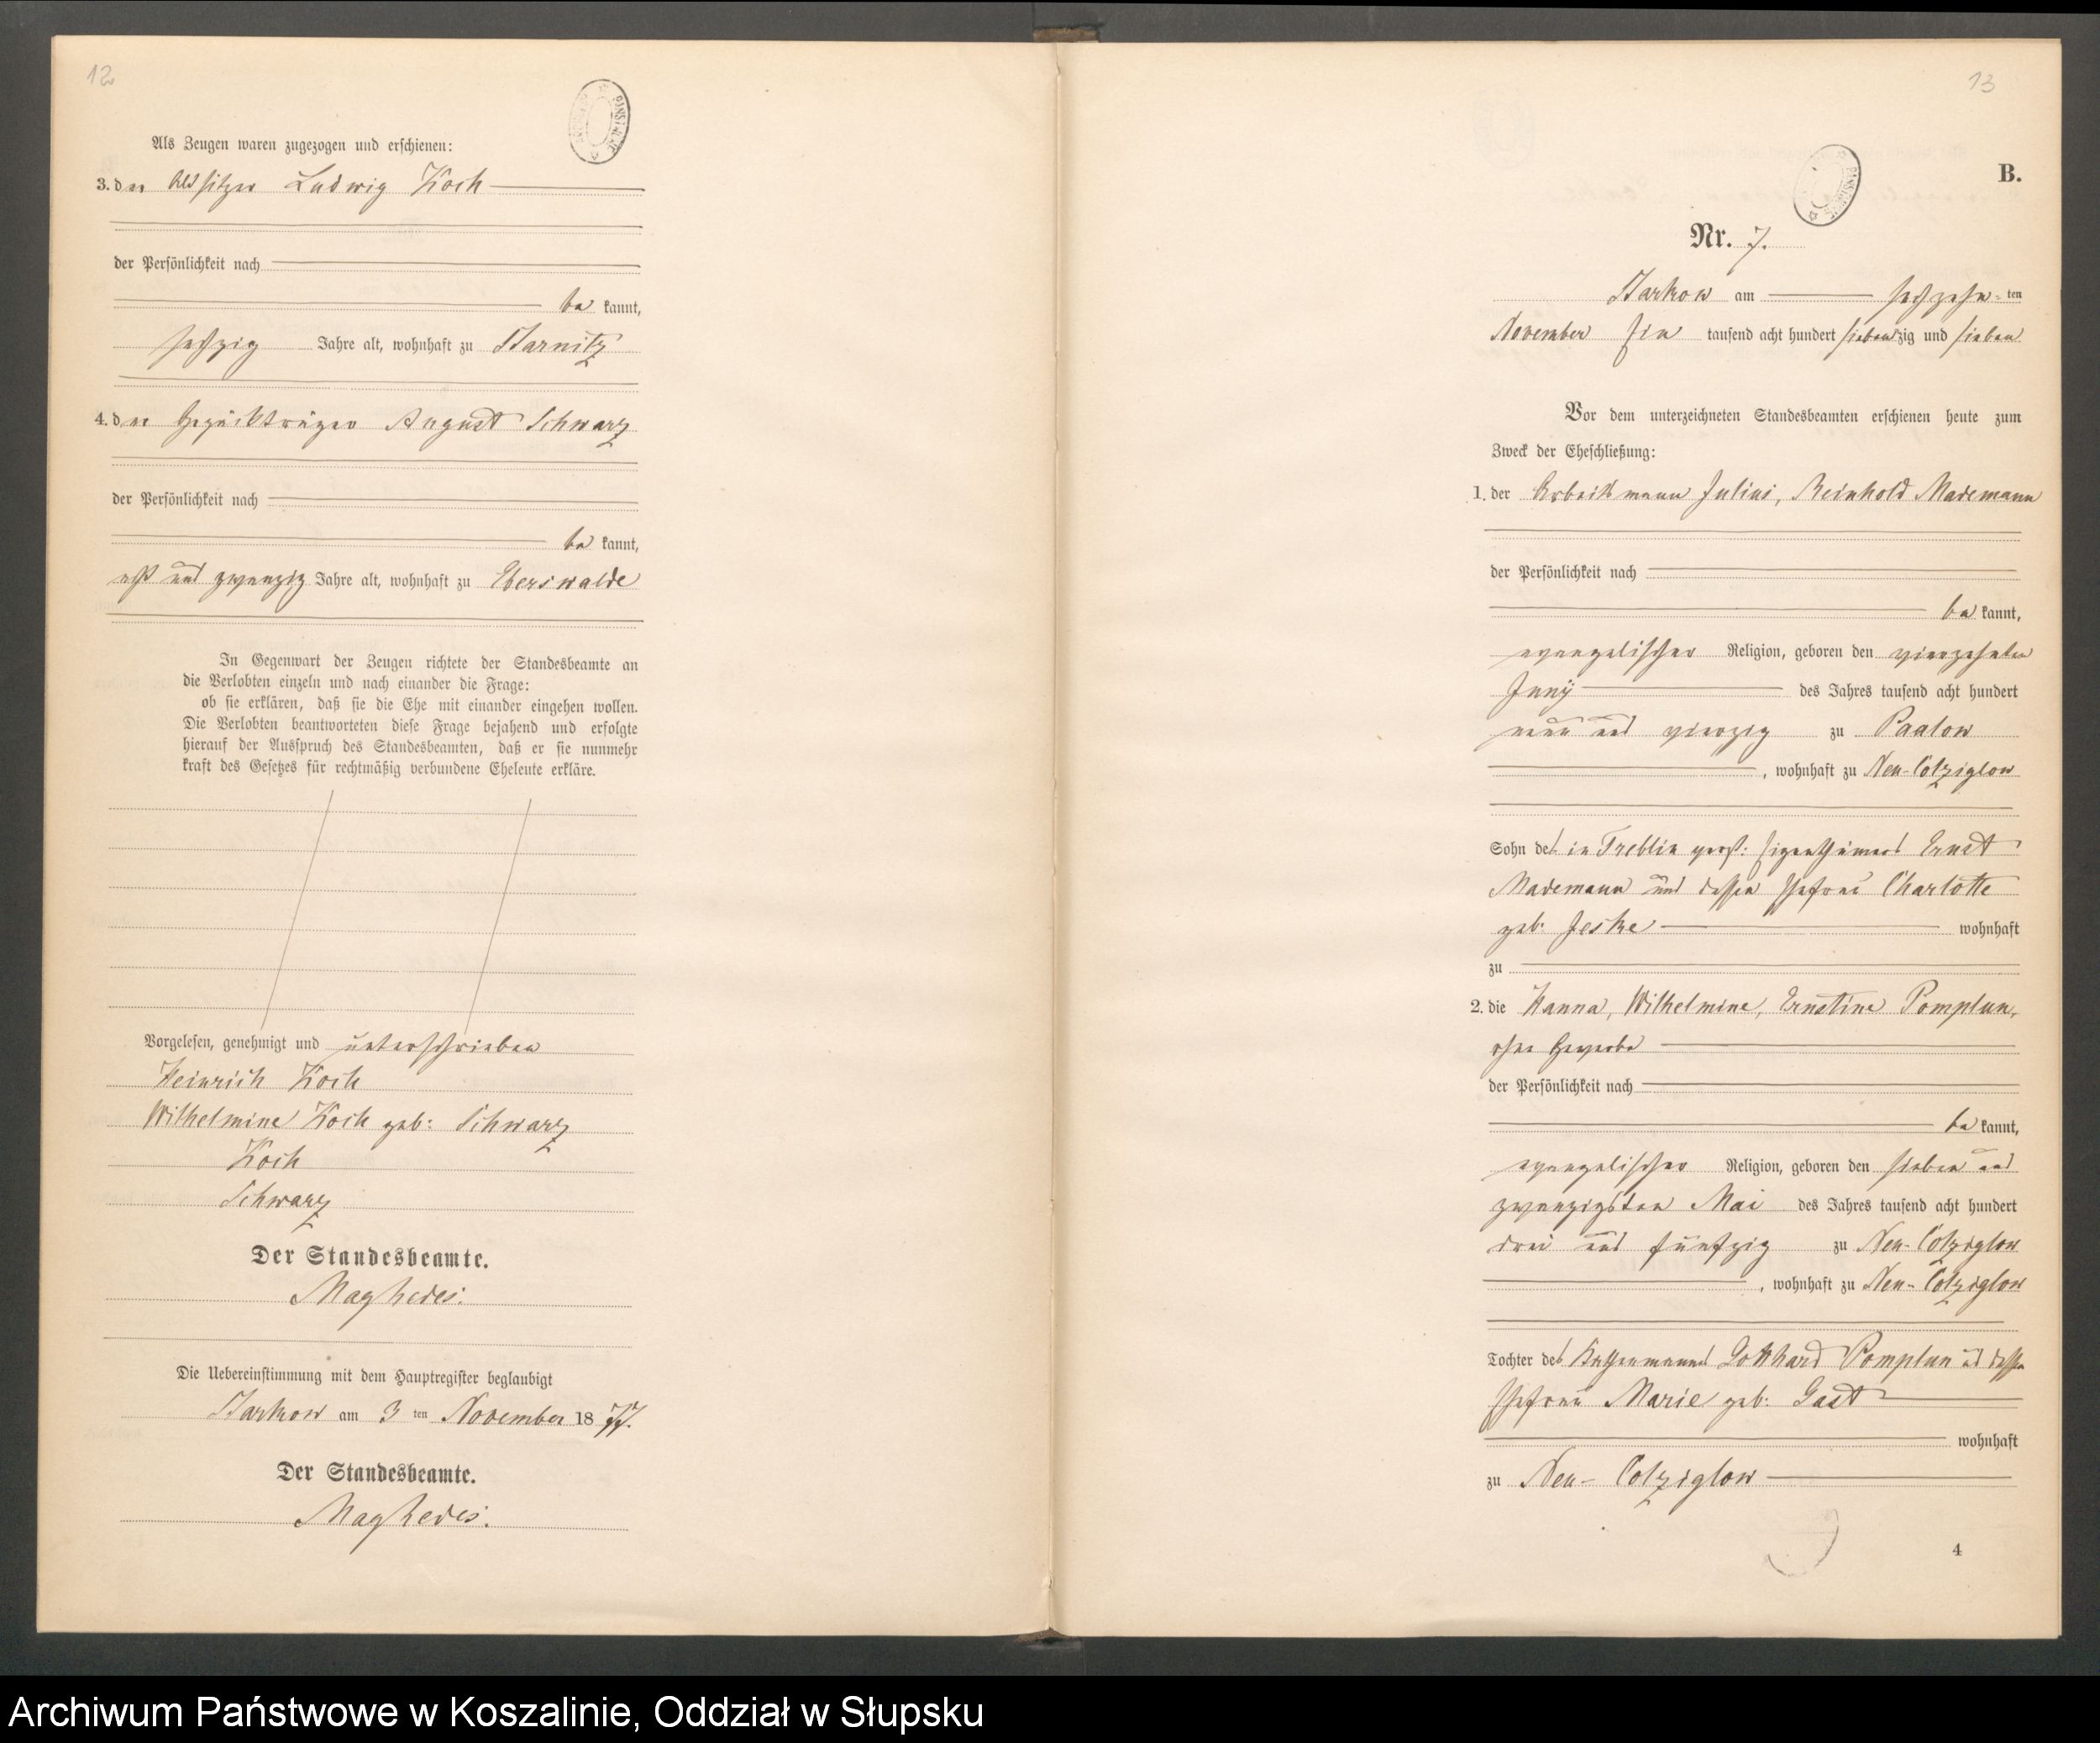 12
Als Zeugen waren zugezogen und erschienen:
3. der Altsitzer Ludwig Koch
der Persönlichkeit nach
bekannt,
sechzig Jahre alt, wohnhaft zu Starnitz
4. der Gepäckträger August Schwarz
der Persönlichkeit nach
bekannt,
acht und zwanzig Jahre alt, wohnhaft zu Eberswalde
In Gegenwart der Zeugen richtete der Standesbeamte an
die Verlobten einzeln und nach einander die Frage:
ob sie erklären, daß sie die Ehe mit einander eingehen wollen.
Die Verlobten beantworteten diese Frage bejahend und erfolgte
hierauf der Ausspruch des Standesbeamten, daß er sie nunmehr
kraft des Gesetzes für rechtmäßig verbundene Eheleute erkläre.
Vorgelesen, genehmigt und unterschrieben
Heinrich Koch
Wilhelmine Koch geb: Schwarz
Koch
Schwarz
Der Standesbeamte.
Die Uebereinstimmung mit dem Hauptregister beglaubigt
Starkow am 3 ten November 1877.
Der Standesbeamte.
13
B.
Nr. 7.
Starkow am sechzehn-ten
November Ein tausend acht hundert siebenzig und sieben
Vor dem unterzeichneten Standesbeamten erschienen heute zum
Zweck der Eheschließung:
1. der Arbeitsmann Julius, Reinhold Mademann
der Persönlichkeit nach
bekannt,
evangelischer Religion, geboren den vierzehnten
Juny des Jahres tausend acht hundert
neun und vierzig zu Paalow
, wohnhaft zu Neu-Colziglow
Sohn des in Treblin verst: Eigenthümers Ernst
Mademann und dessen Ehefrau Charlotte
geb: Jeske wohnhaft
zu
2. die Hanna, Wilhelmine, Ernstine Pomplun,
ohne Gewerbe
der Persönlichkeit nach
bekannt,
evangelischer Religion, geboren den sieben und
zwanzigsten Mai des Jahres tausend acht hundert
drei und fünfzig zu Neu-Colziglow
, wohnhaft zu Neu-Colziglow
Tochter des Kathenmanns Gotthard Pomplun und dessen
Ehefrau Marie geb: Gast
wohnhaft
zu Neu-Colziglow
4
Archiwum Państwowe w Koszalinie, Oddział w Słupsku